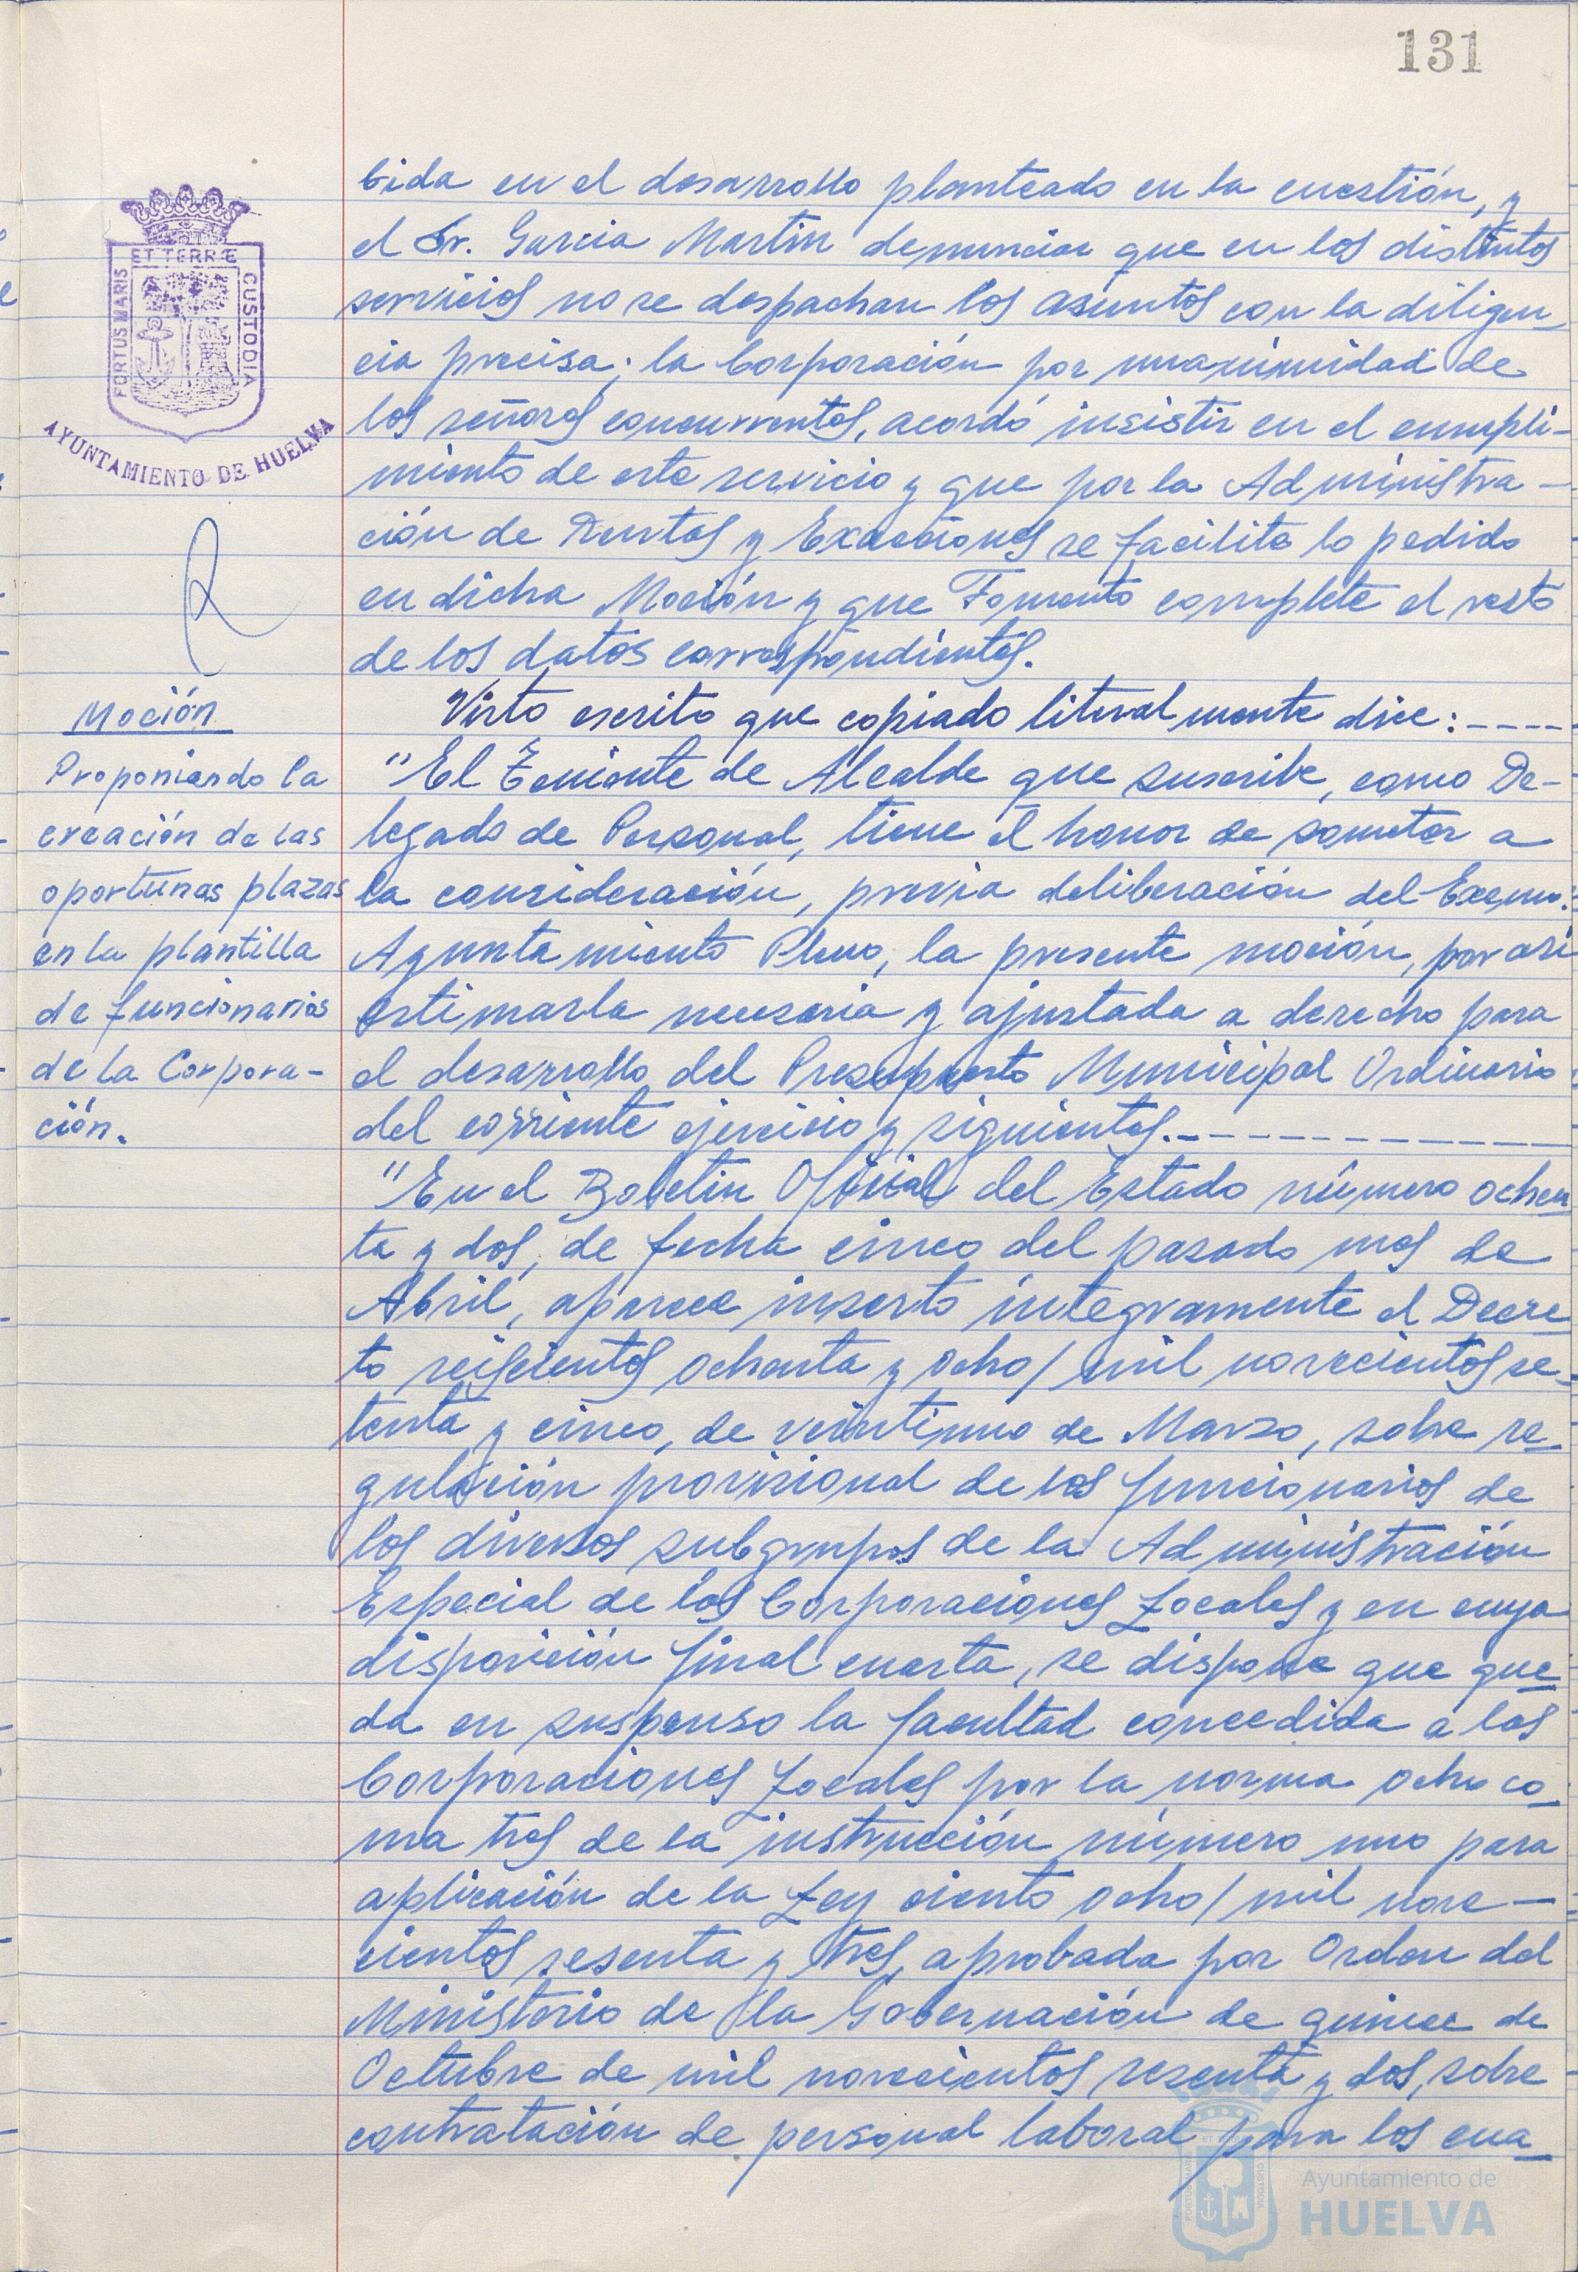 131
bida en el desarrollo planteado en la cuestión, y
el Sr. García Martín denunciar que en los distintos
servicios no se despachan los asuntos con la diligen-
cia precisa; la Corporación por unanimidad de
los señores concurrentes, acordó insistir en el cumpli-
miento de este servicio y que por la Administra-
ción de Rentas y Exacciones se facilite lo pedido
en dicha Moción y que Fomento complete el resto
de los datos correspondientes.
ET TERRÆ
FORTUS MARIS
CUSTODIA
AYUNTAMIENTO DE HUELVA
Moción
Proponiendo la
creación de las
oportunas plazas
en la plantilla
de funcionarios
de la Corpora-
ción.
Visto escrito que copiado literalmente dice:----
"El Teniente de Alcalde que suscribe, como De-
legado de Personal, tiene el honor de someter a
la consideración, previa deliberación del Excmo.
Ayuntamiento Pleno, la presente moción, por así
estimarla necesaria y ajustada a derecho para
el desarrollo del Presupuesto Municipal Ordinario
del corriente ejercicio y siguientes.-------------
"En el Boletín Oficial del Estado número ochen
ta y dos, de fecha cinco del pasado mes de
Abril, aparece inserto íntegramente el Decre
to seiscientos ochenta y ocho/mil novecientos se-
tenta y cinco, de veintiuno de Marzo, sobre re-
gulación provisional de los funcionarios de
los diversos subgrupos de la Administración
Especial de las Corporaciones Locales y en cuya
disposición final cuarta, se dispone que que
da en suspenso la facultad concedida a las
Corporaciones Locales por la norma ocho co-
ma tres de la instrucción número uno para
aplicación de la Ley ciento ocho/mil nove-
cientos sesenta y tres, aprobada por Orden del
Ministerio de la Gobernación de quince de
Octubre de mil novecientos sesenta y dos, sobre
contratación de personal laboral para los cua
Ayuntamiento de
HUELVA